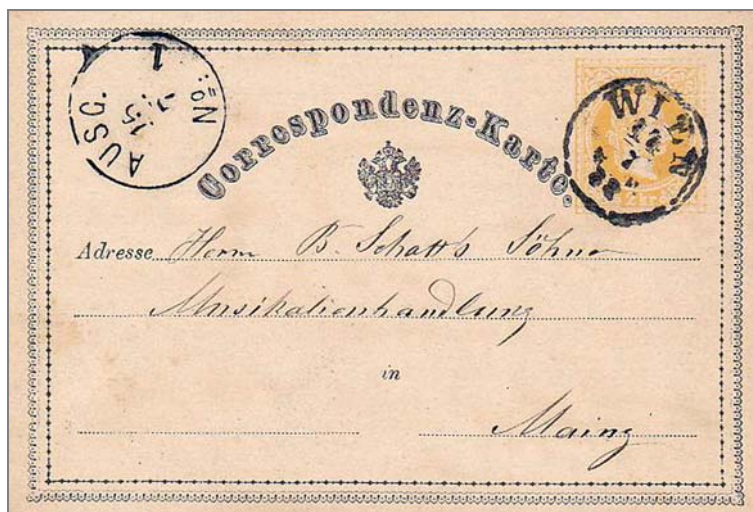 AUSG. 15 7 Nº: 1
Correspondenz-Karte.
WIEN
Adresse Herrn B. Schott's Söhne
Musikalienhandlung
in
Mainz